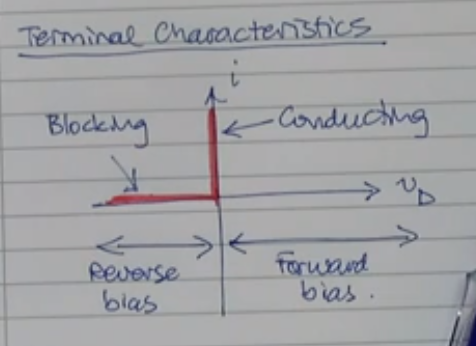 Terminal Characteristics
i
Blocking
Conducting
v_D
Reverse
bias
Forward
bias.